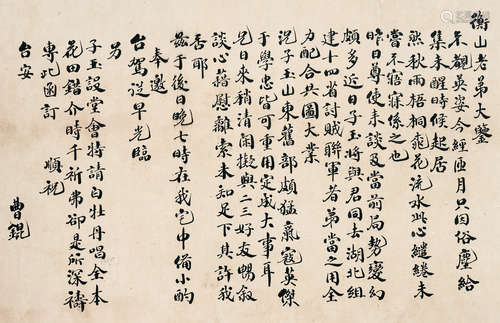 衡山老弟大鑒
不觀英姿今經匝月只因俗塵給
集未醒時候起居
然秋雨梧桐飛花流水此心繾綣未
嘗不寤寐係之也
昨日尊使來談及當前局勢變幻
頗多近日子玉將與君同去湖北組
建十四省討賊聯軍者弟當之用全
力配合共圖大業
況子玉山東舊部頗猛氣寇英傑
于學忠皆可重用定成大事耳
兄日來稍清閑擬與二三好友暢敘
談心藉慰離索未知足下其許我
否耶
茲于後日晚七時在我宅中備小酌
奉邀
台駕送早光臨
另
子玉設堂會特請白牡丹唱全本
花田錯介時千祈弗卻是所深禱
專此函訂 順祝
台安
曹錕